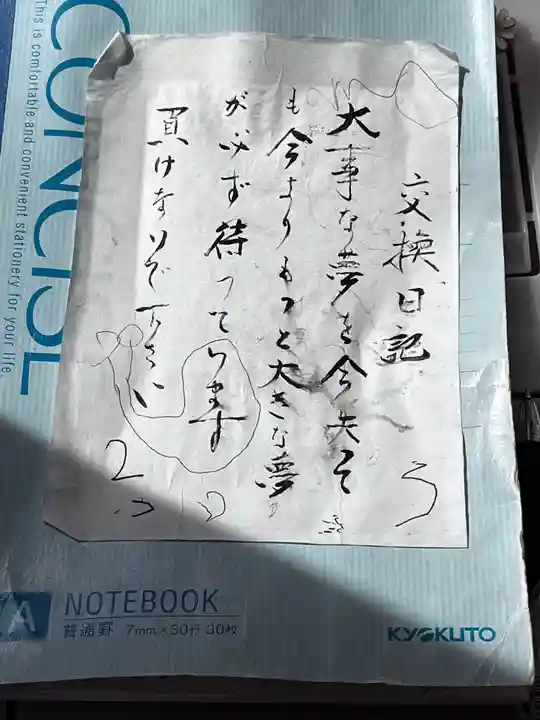 交換日記
大事な夢を今失って
も今よりもっと大きな夢
が必ず待っています
負けないで下さい
CONCISE
This is comfortable and convenient stationery for your life.
A
NOTEBOOK
普通罫 7mm×30行 30枚
KYOKUTO